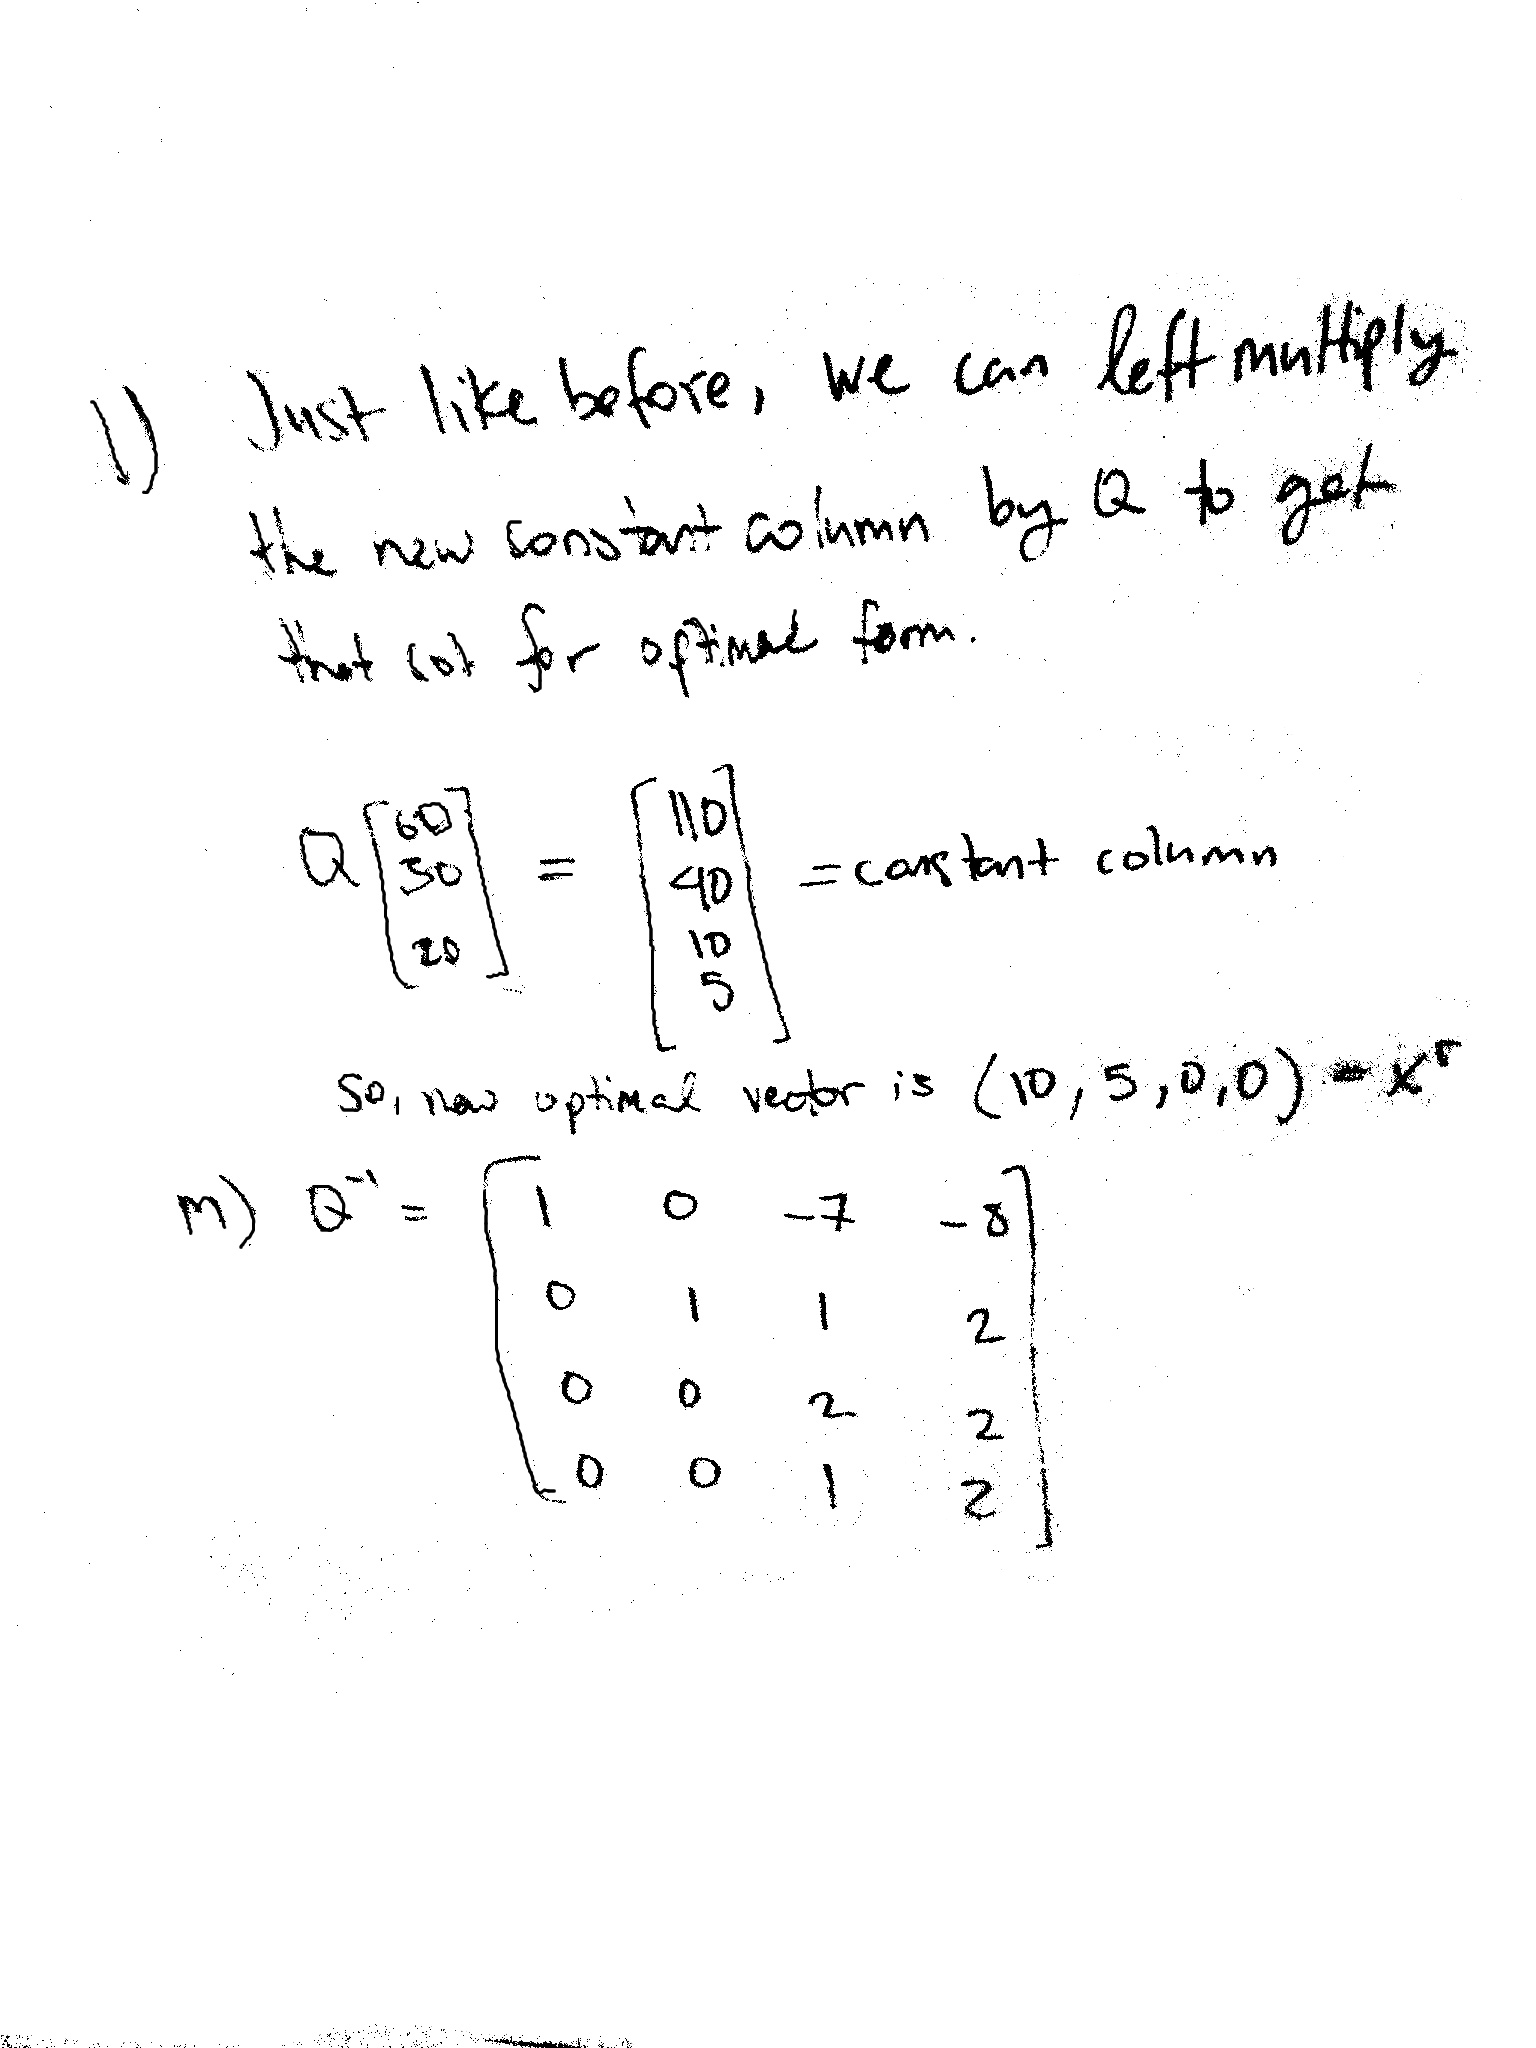 l) Just like before, we can left multiply
the new constant column by Q to get
that col for optimal form.
Q [60 30 20] = [110 40 10 5] = constant column
So, new optimal vector is (10, 5, 0, 0) = x^r
m) Q^-1 = [1 0 -7 -8
0 1 1 2
0 0 2 2
0 0 1 2]